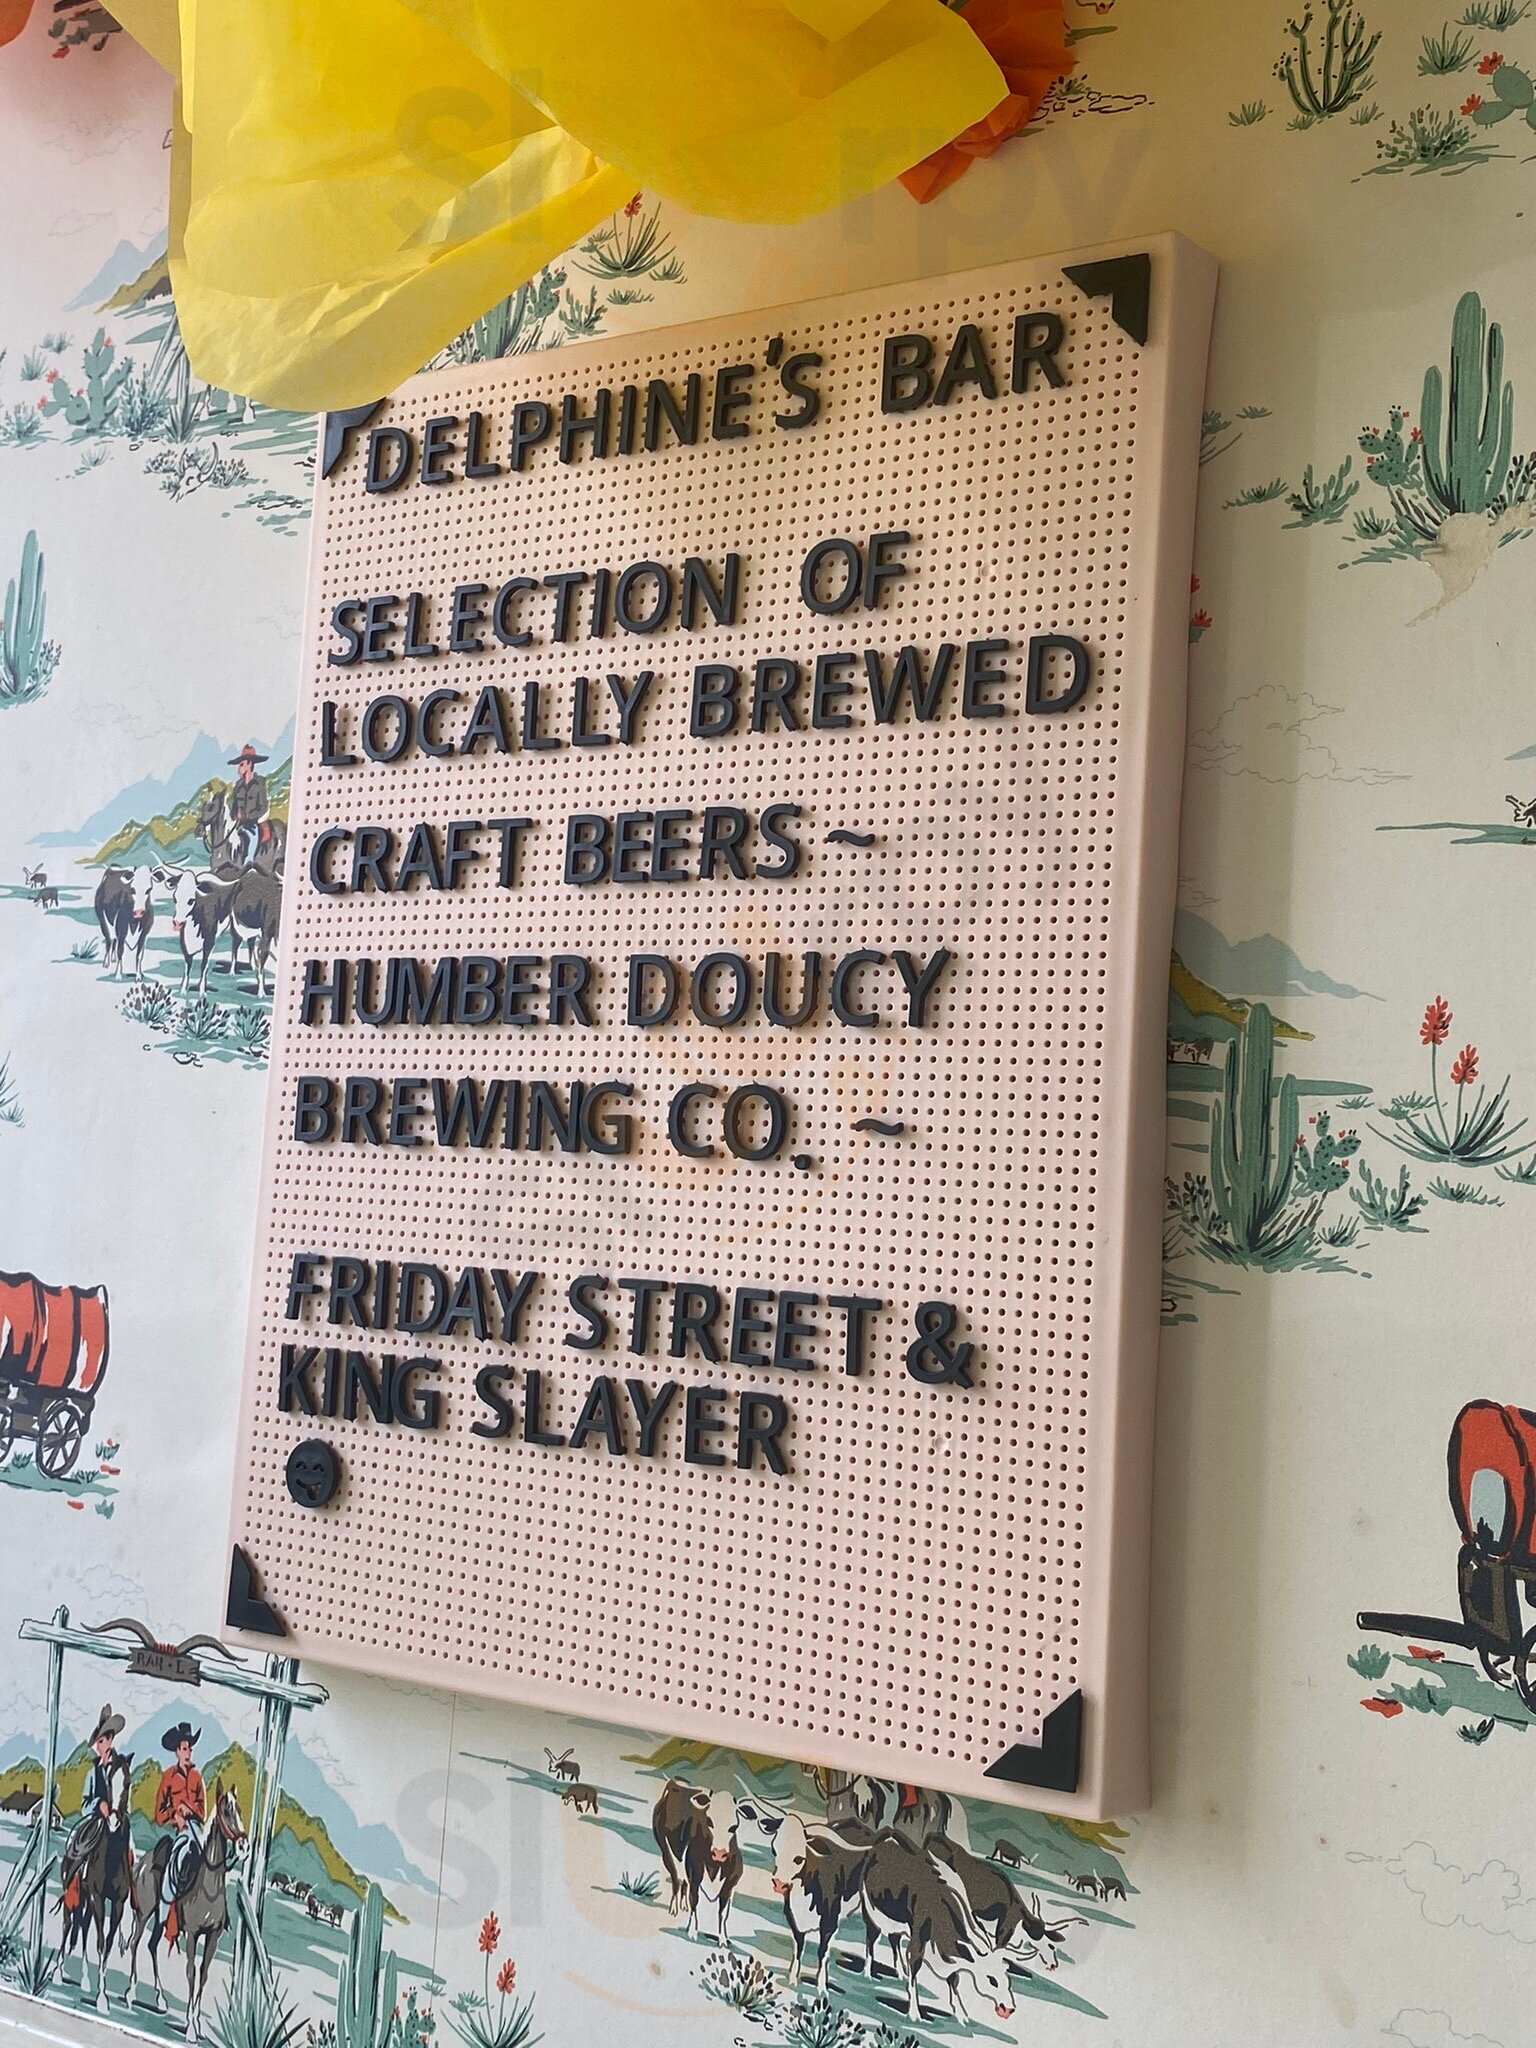 Slurpy
DELPHINE'S BAR
SELECTION OF
LOCALLY BREWED
CRAFT BEERS ~
HUMBER DOUCY
BREWING CO. ~
FRIDAY STREET &
KING SLAYER
BAR-L